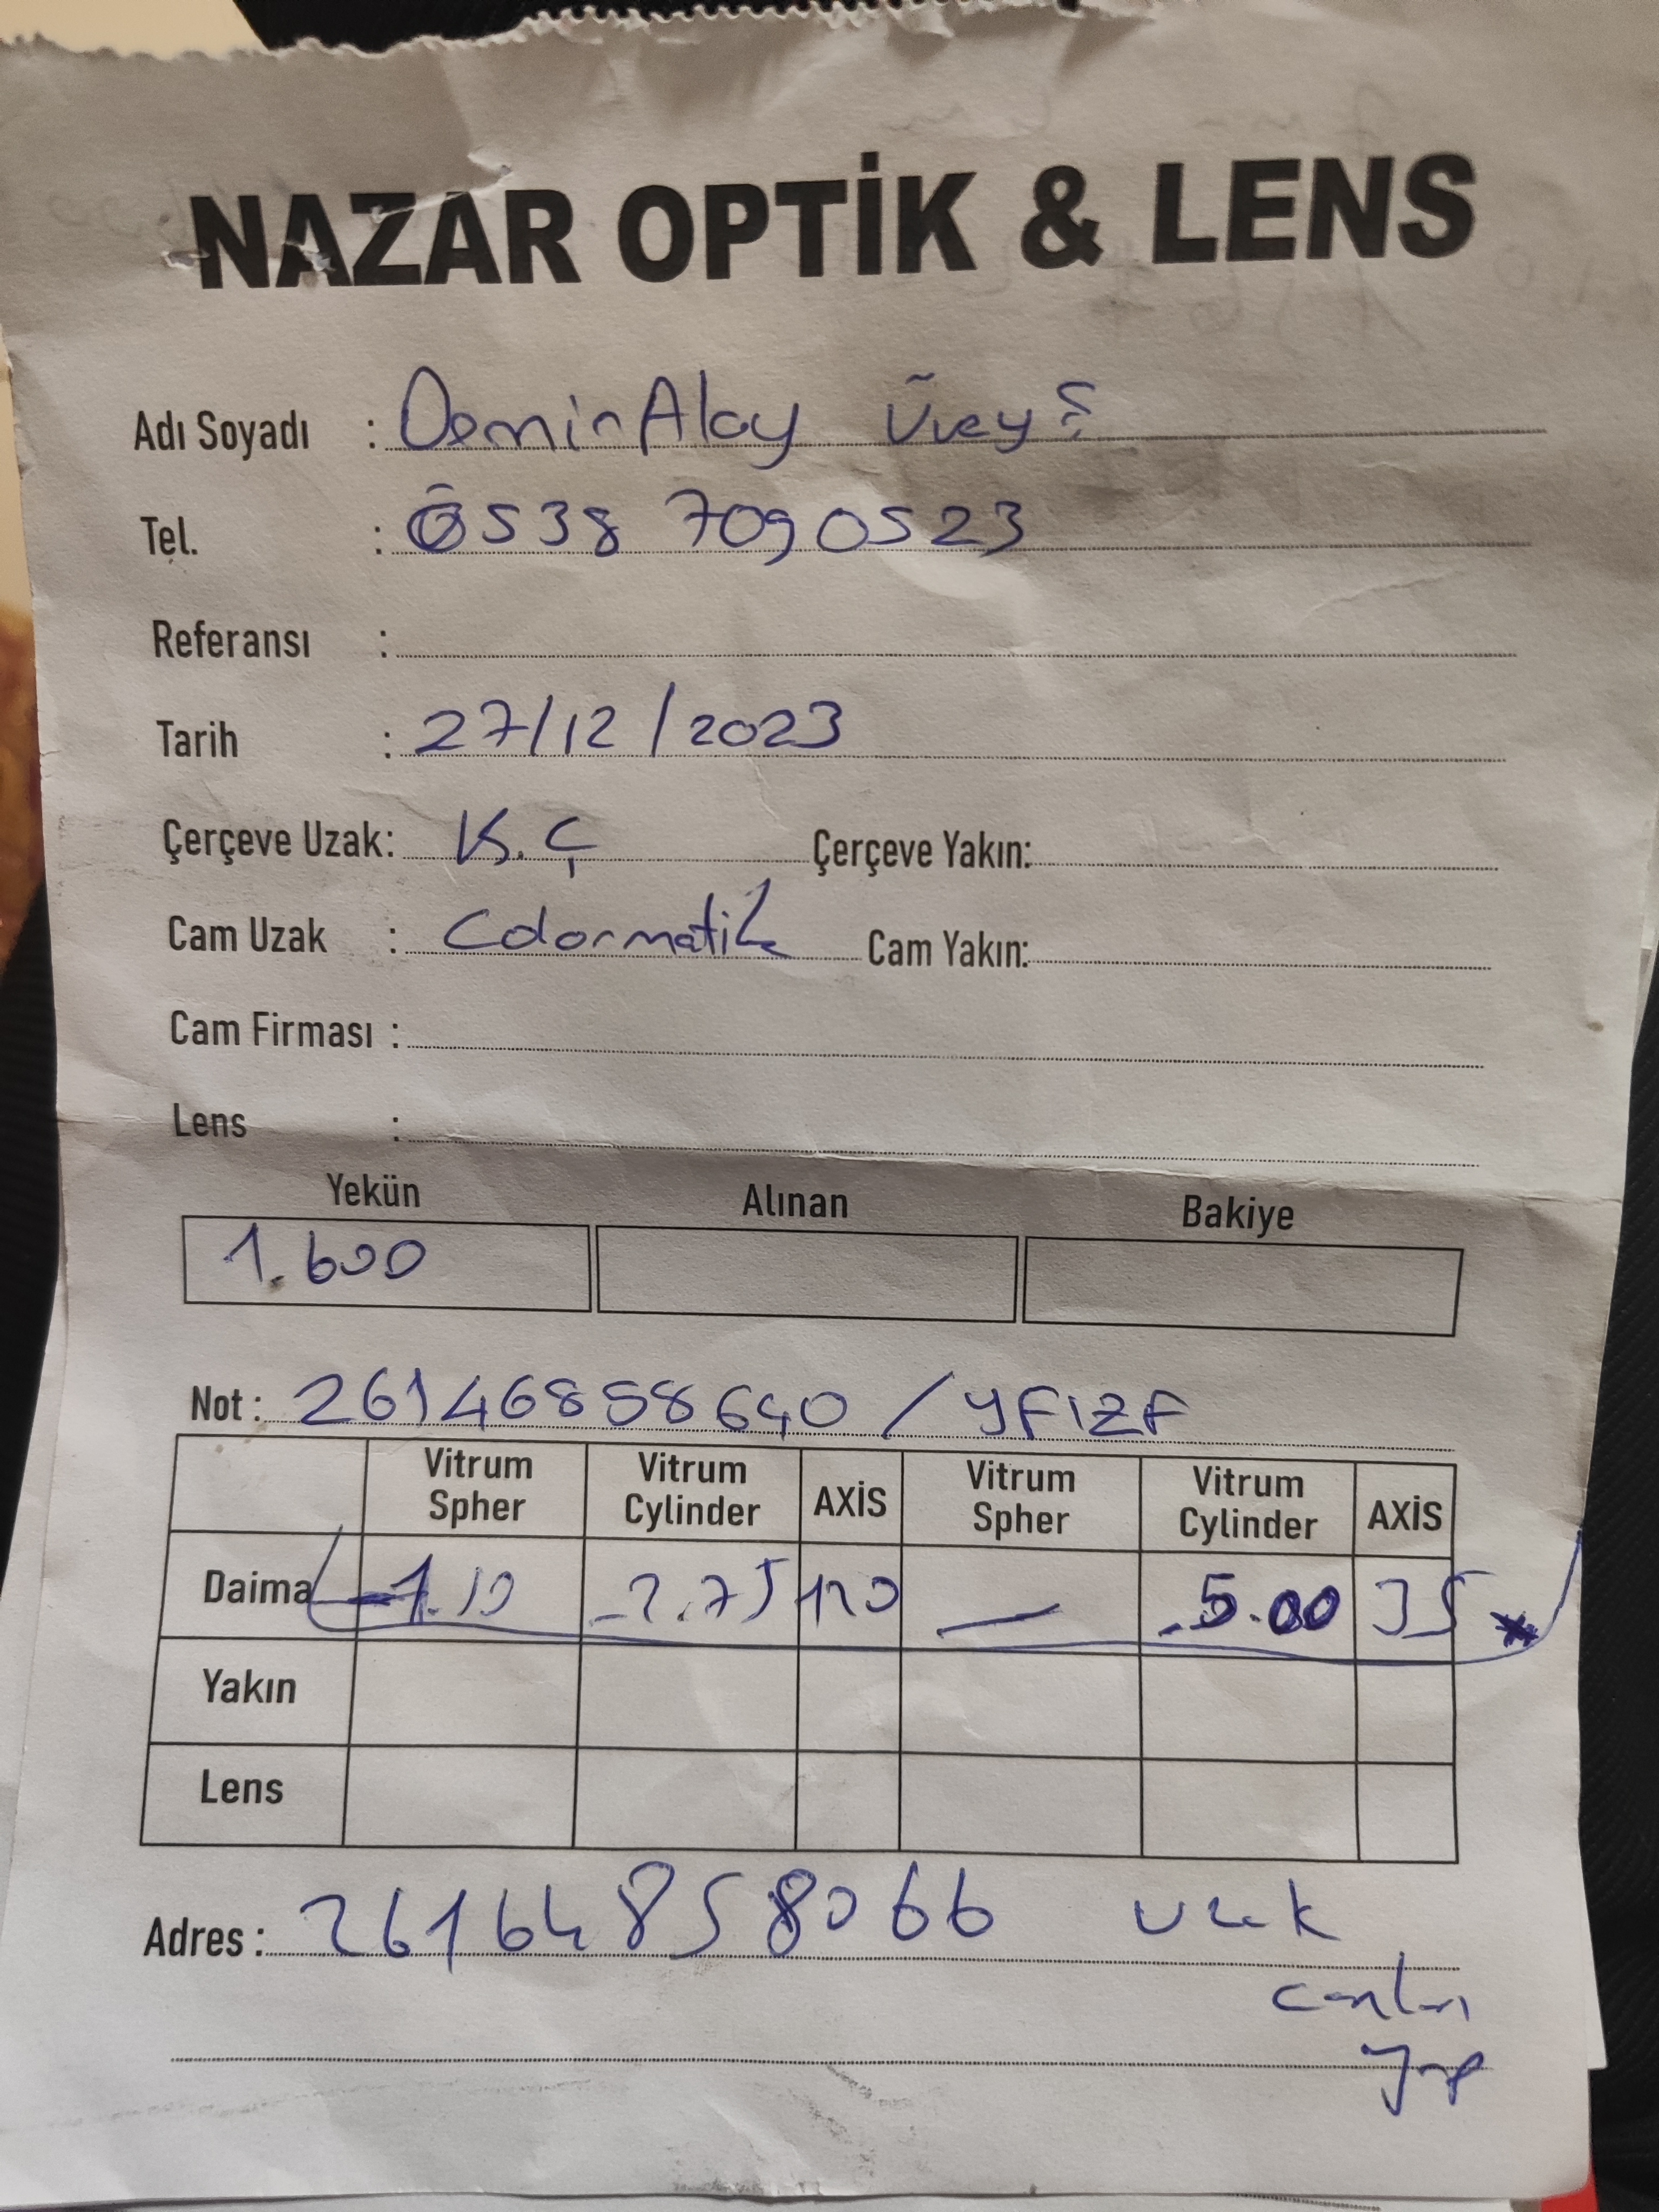 NAZAR OPTİK & LENS
Adı Soyadı : DemirAlay Üveyş
Tel. : 0538 7090523
Referansı :
Tarih : 27/12/2023
Çerçeve Uzak: K.Ç Çerçeve Yakın:
Cam Uzak : Colormatik Cam Yakın:
Cam Firması :
Lens :
Yekün Alınan Bakiye
1.600
Not : 26146858640 / YFIZF
Vitrum Spher Vitrum Cylinder AXİS Vitrum Spher Vitrum Cylinder AXİS
Daima -1.10 -2.75 120 — -5.00 35 *
Yakın
Lens
Adres : 26164858066 uzak
camları
yap